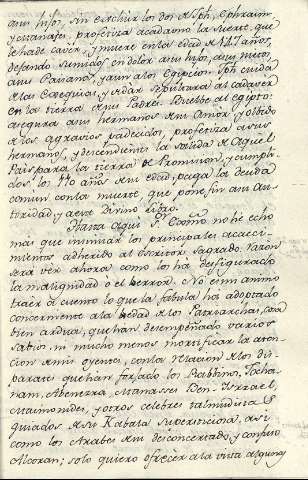 sus hijos, sin excluir los dos de Jph, Ephraim,
y Manases, profetiza á cada uno la suerte, que
le ha de caver, y muere en la edad de 147 años,
dexando sumidos en dolor á sus hijos, sus nietos,
sus Paisanos, y aun a los Egipcios. Jph cuida
de las Exequias, y va á dar sepultura al cadaver
en la tierra de sus Padres. Buelbe al egipto
asegura á sus hermanos de su Amor, y olbido
de los agravios padecidos, profetiza á sus
hermanos, y descendientes la salida de aquel
Pais para la tierra de Promision, y cumpli-
dos los 110 años de su edad, paga la deuda
comun con la muerte, que pone fin a su
autoridad y a este Divino libro.
Hasta aqui no he echo
mas que insinuar los principales acaeci-
mientos adherido al Escritor Sagrado. Razon
será ver ahora como los ha desfigurado
la malignidad ó el herror. No es mi animo
traer á cuento lo que la fabula ha adoptado
concerniente a la hedad de los Patriarchas, cosa
bien ardua, que han desempeñado varios
sabios, ni mucho menos mortificar la aten-
cion de mis oyentes, con la relacion de los dis-
parates que han forjado los Rabbino,
Abenezra, Manasses Ben-Ysrrael,
Maimonides, y otros celebres talmudistas
guiados de su Kabala supersticiosa, asi
como los Arabes de su desconcertado, y confuso
Alcoran; solo quiero ofrecer a la vista algunos